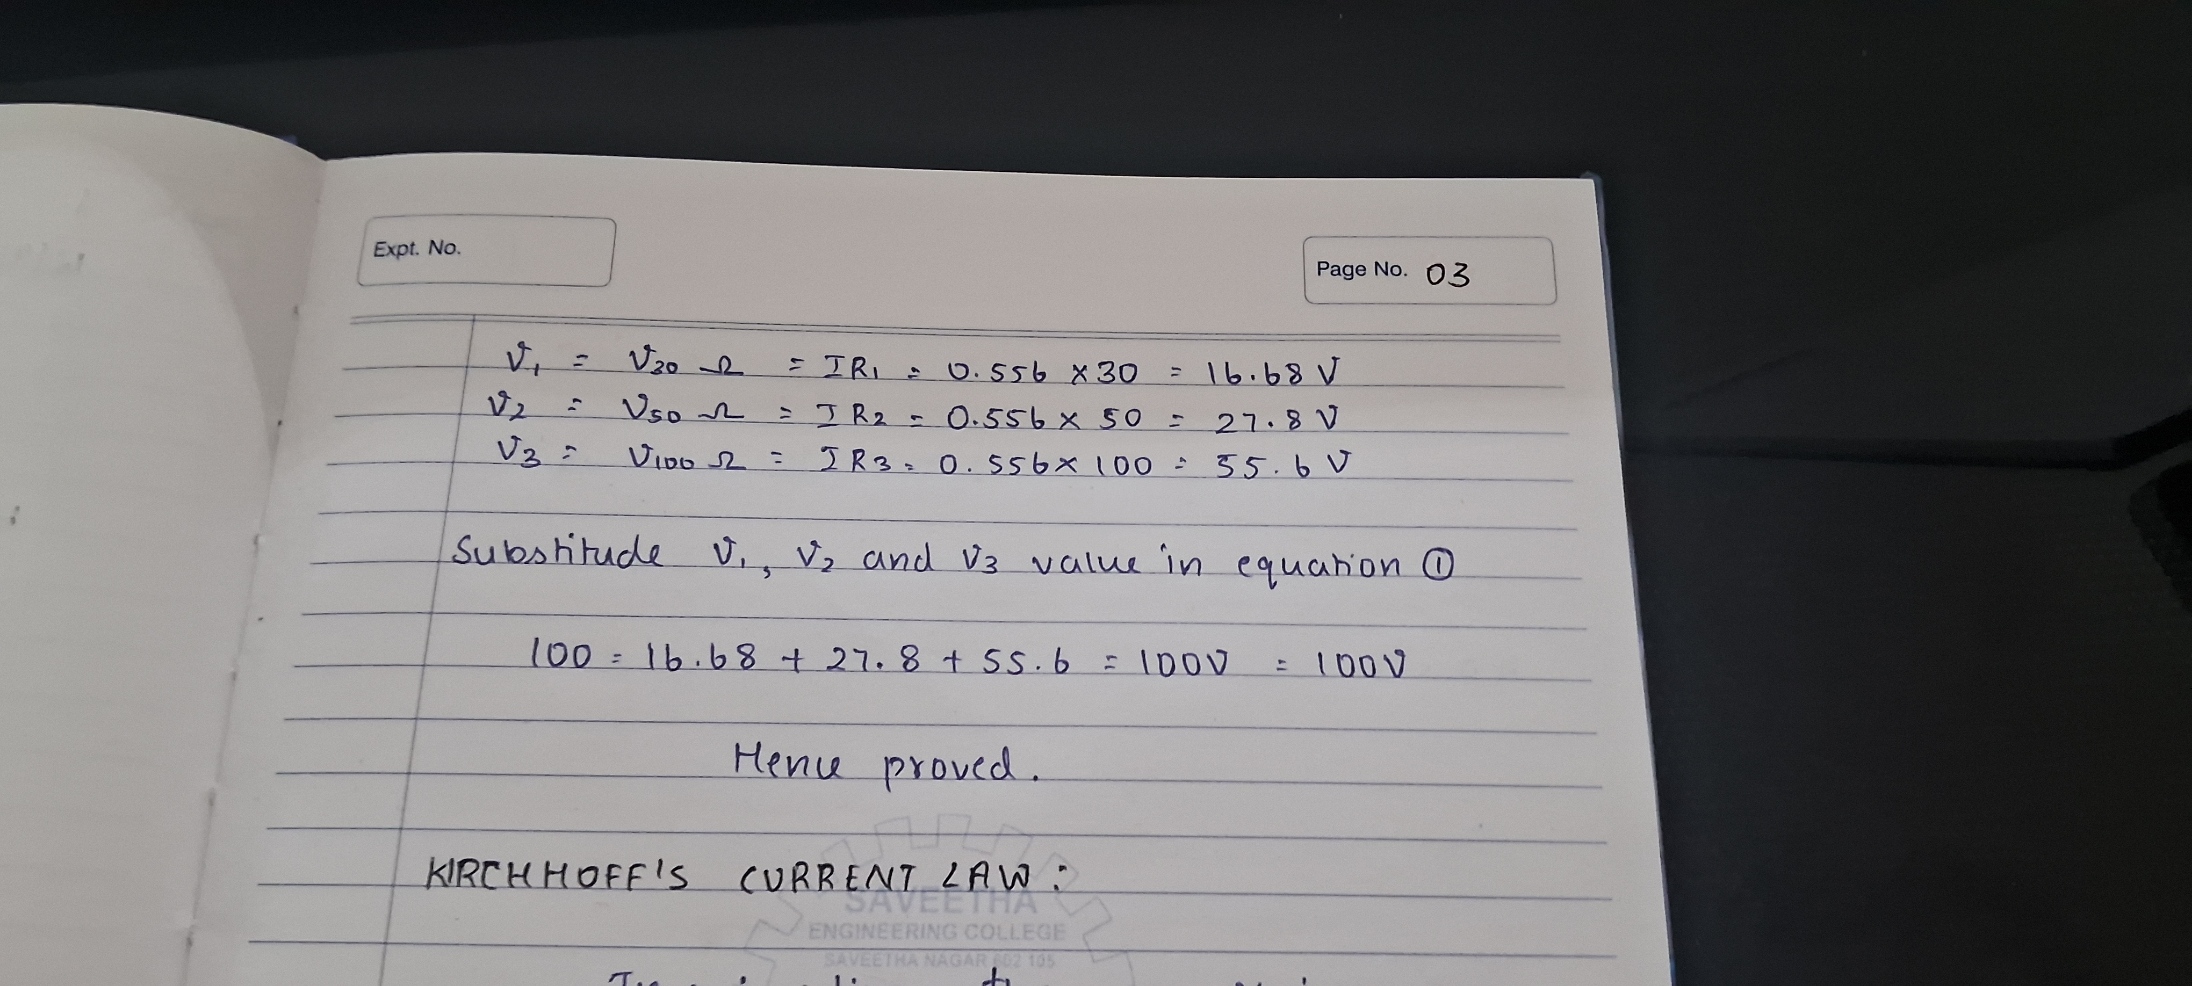 Expt. No.
Page No. 03
V1 = V30 Ω = IR1 = 0.556 × 30 = 16.68 V
V2 = V50 Ω = IR2 = 0.556 × 50 = 27.8 V
V3 = V100 Ω = IR3 = 0.556 × 100 = 55.6 V
Substitude V1, V2 and V3 value in equation ①
100 = 16.68 + 27.8 + 55.6 = 100V = 100V
Hence proved.
KIRCHHOFF'S CURRENT LAW:
SAVEETHA
ENGINEERING COLLEGE
SAVEETHA NAGAR 602 105